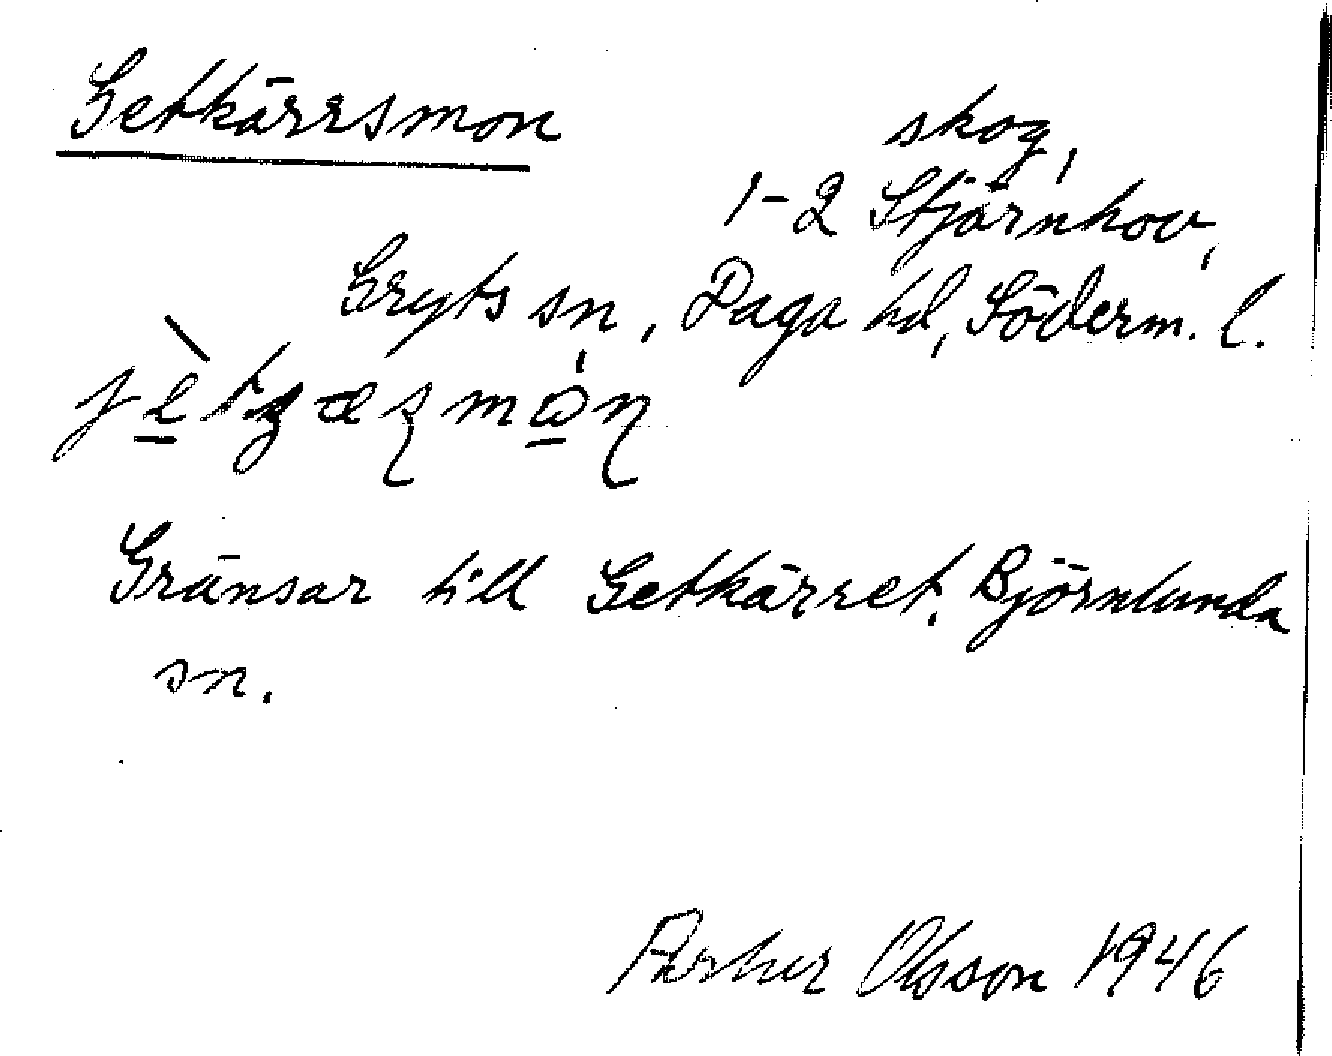 Getkärrsmon
skog,
1-2 Stjärnhov,
Gryts sn, Daga hd, Söderm. l.
Gränsar till Getkärret, Björnlunda
sn.
Olsson 1946